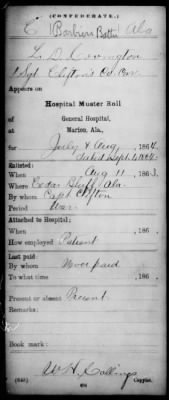 (CONFEDERATE.)
C Barbiere's Battn. Ala.
L. D. Covington
1 Sgt. Clifton's Co. Cav.
Appears on
Hospital Muster Roll
of
General Hospital,
Marion, Ala.,
for July & Aug, 1864.
dated Sept. 1, 1864.
Enlisted:
When Aug 11, 1863.
Where Cedar Bluff, Ala.
By whom Capt. Clifton
Period War
Attached to Hospital:
When , 186 .
How employed Patient
Last paid:
By whom Never paid
To what time , 186 .
Present or absent Present
Remarks:
Book mark:
W H Collings
Copyist.